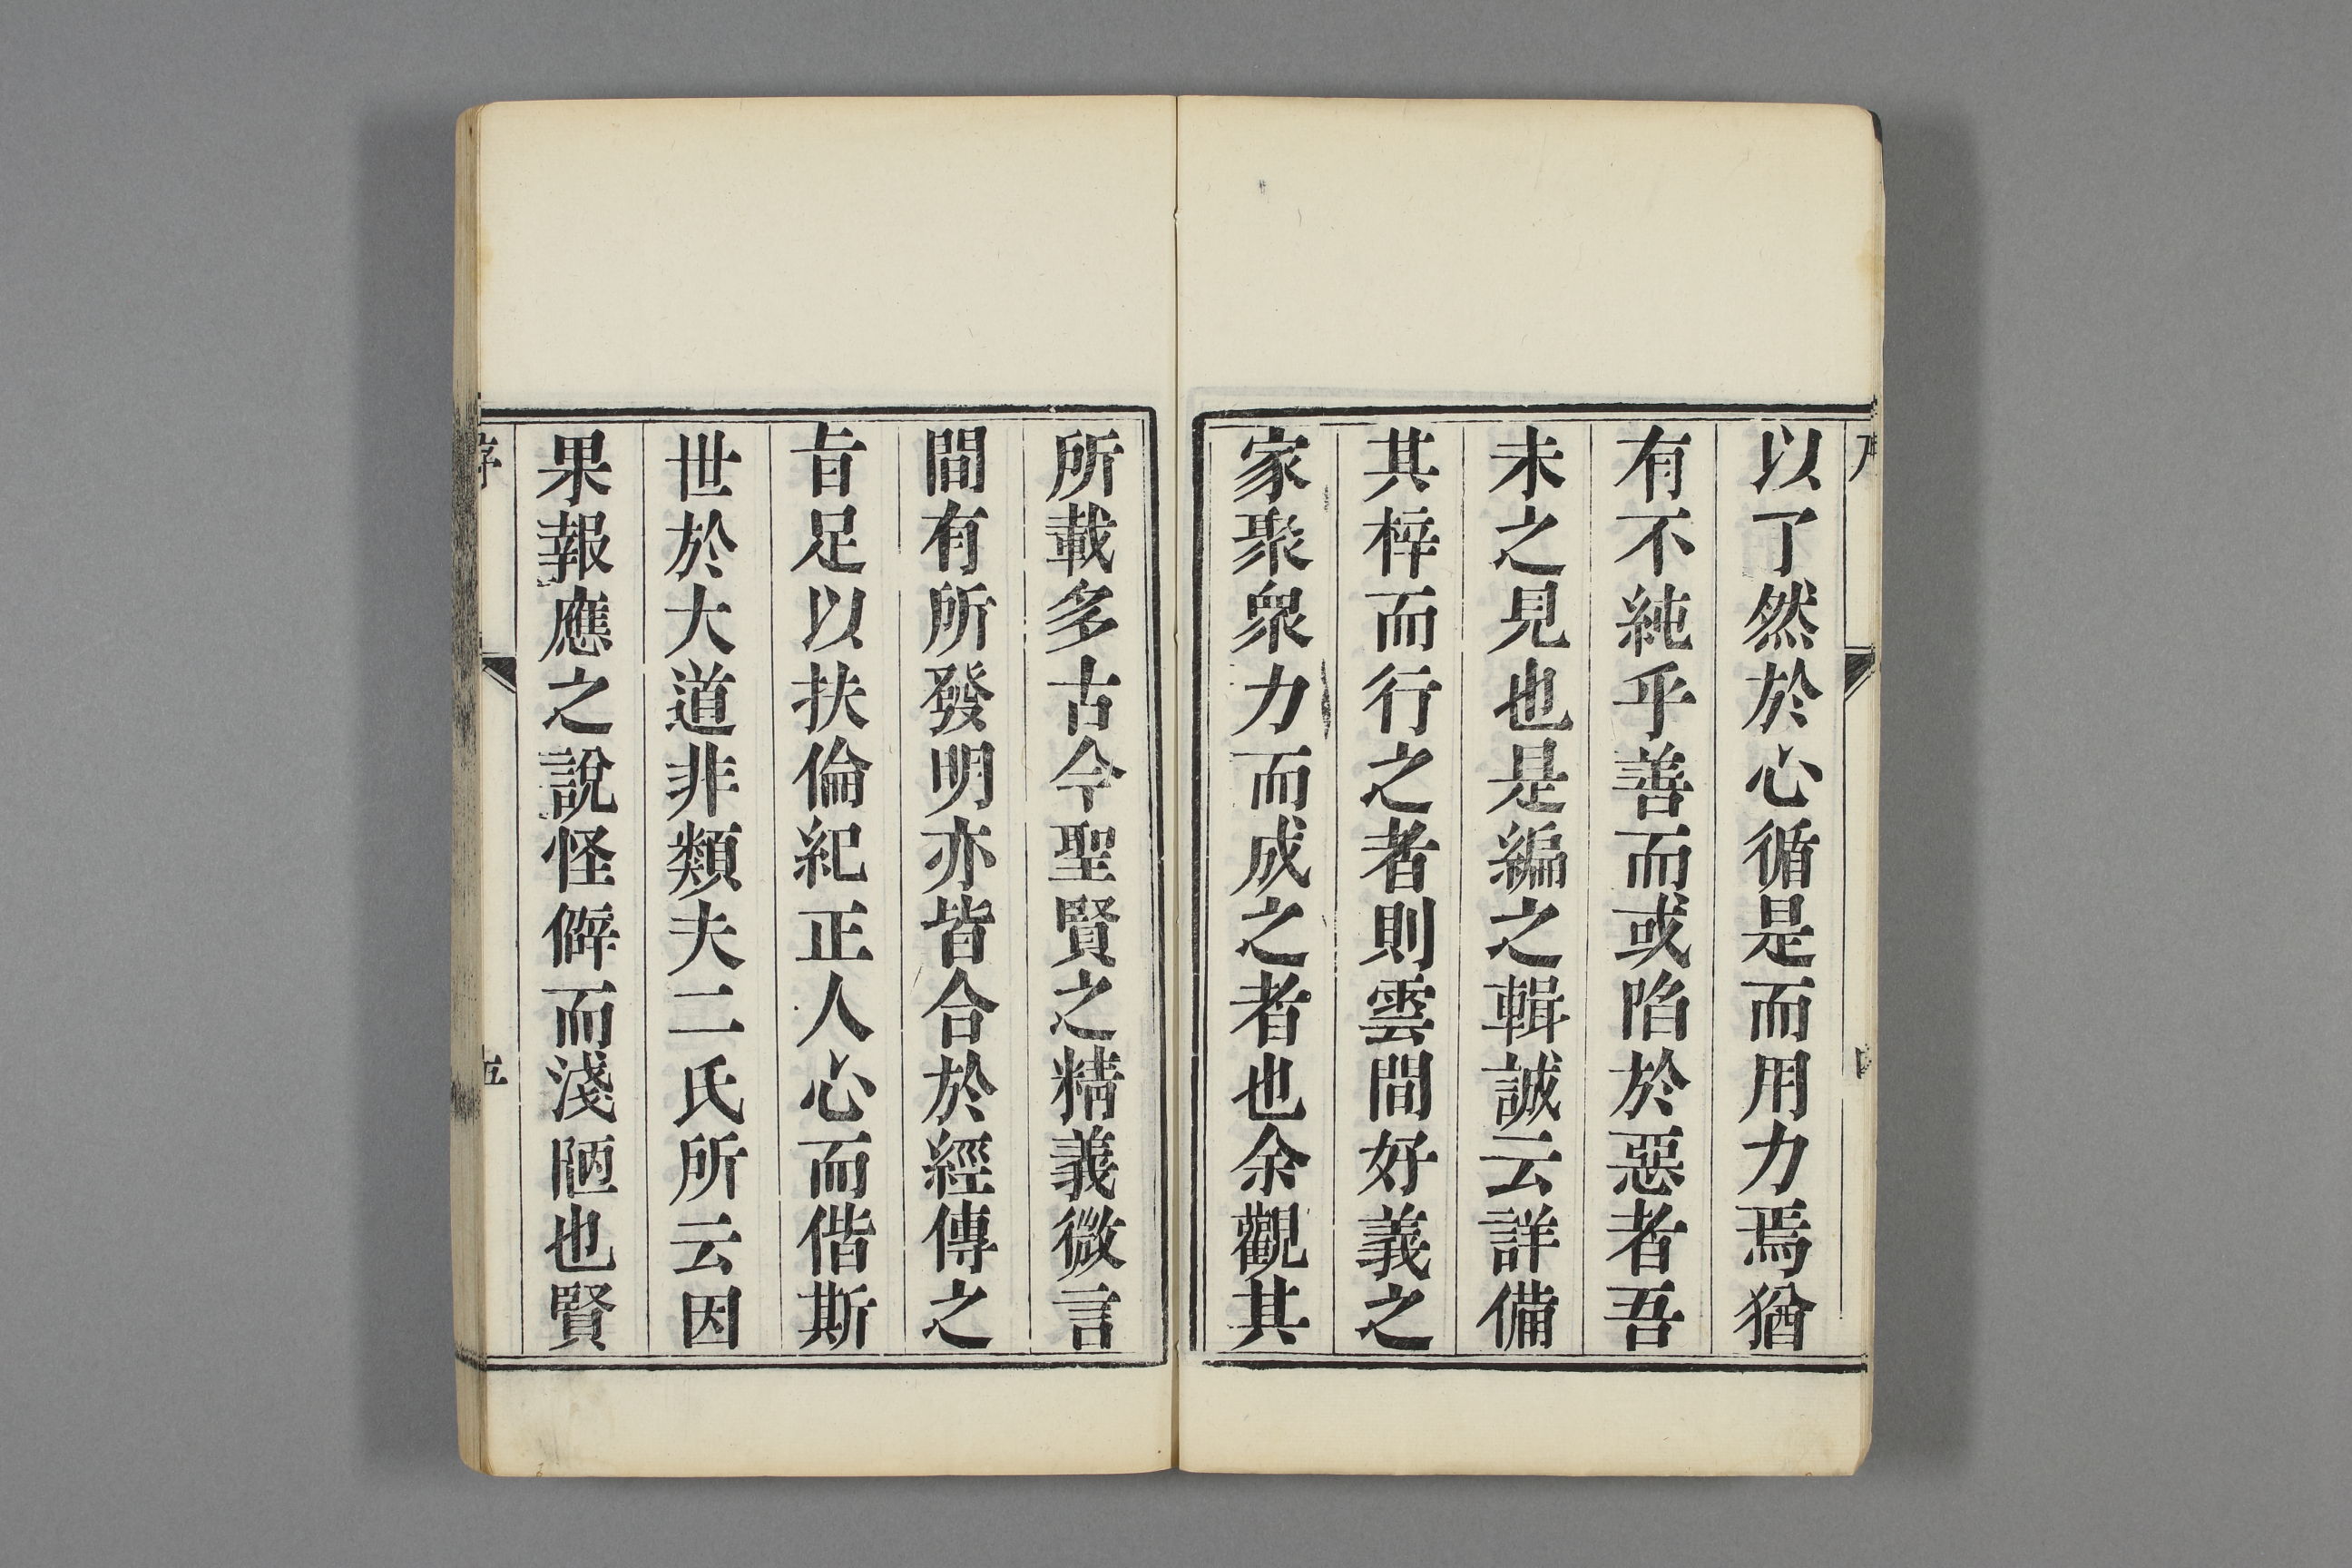 以了然於心循是而用力焉猶
有不純乎善而或陷於惡者吾
未之見也是編之輯誠云詳備
其梓而行之者則雲間好義之
家聚衆力而成之者也余觀其
所載多古今聖賢之精義微言
間有所發明亦皆合於經傳之
旨足以扶倫紀正人心而偕斯
世於大道非類夫二氏所云因
果報應之說怪僻而淺陋也賢
序
五